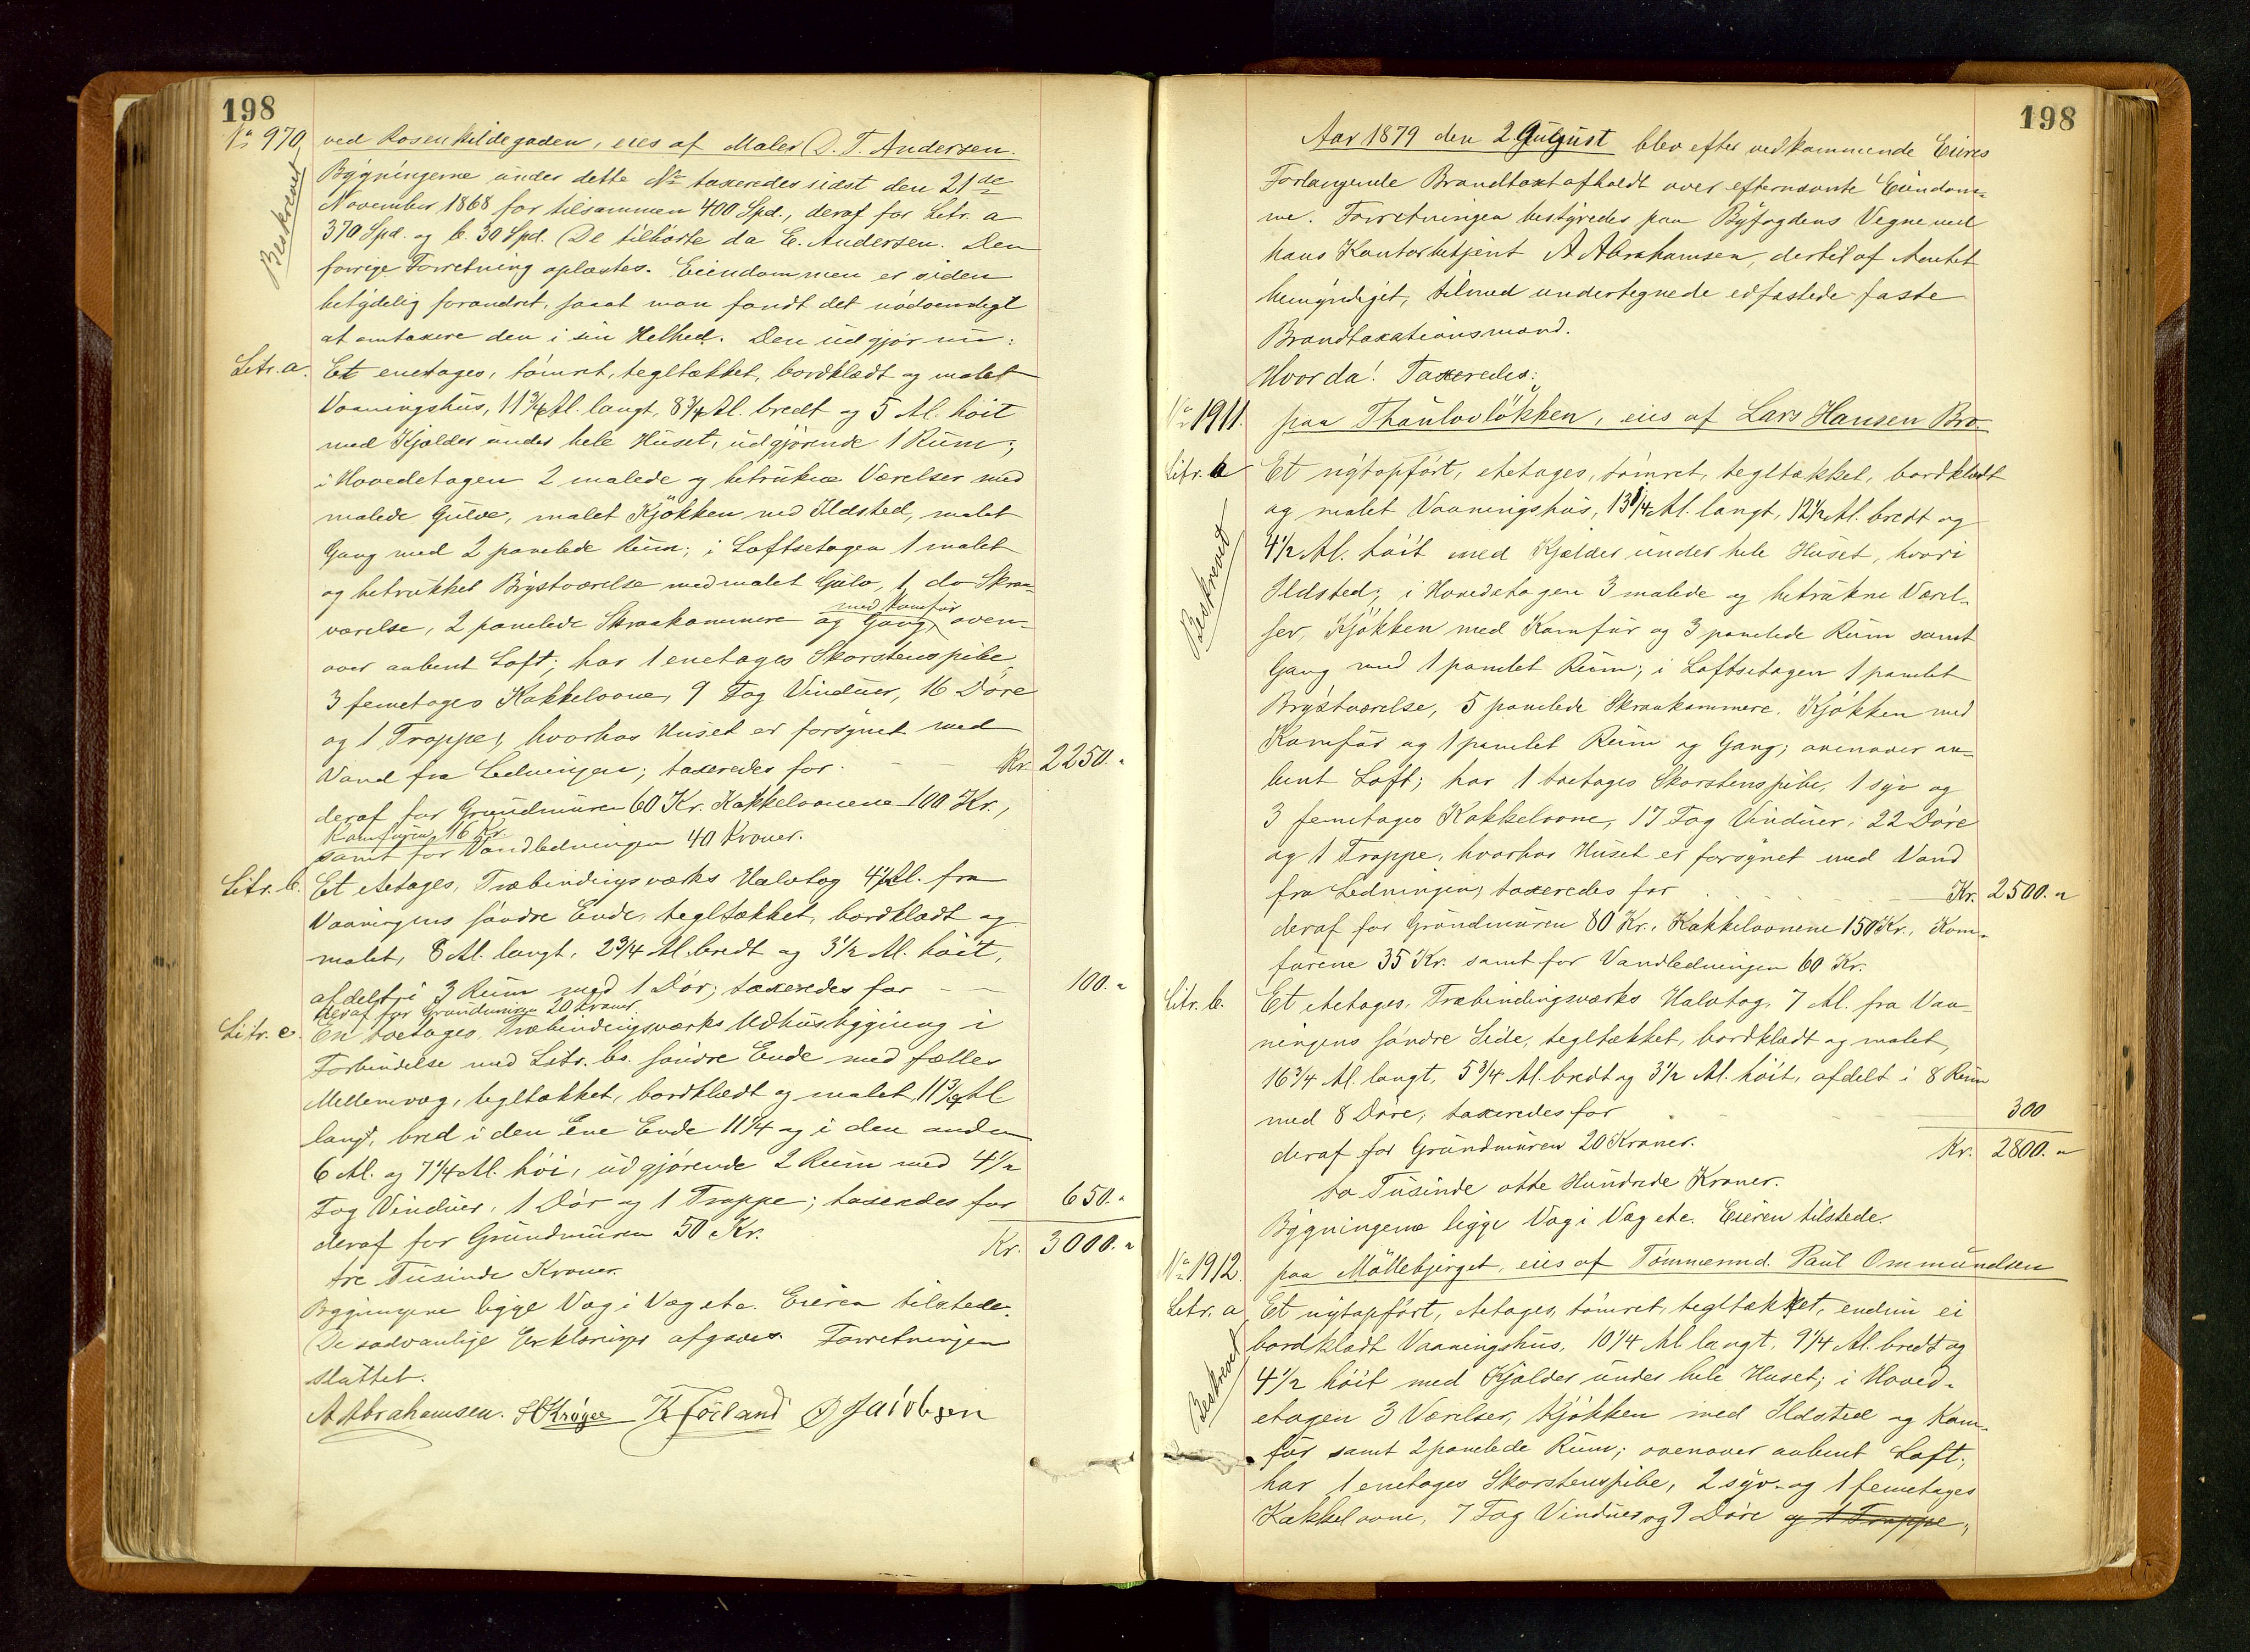 198
No 970 ved Rosenkildegaden, eies af Maler D. T. Andersen.
Beskrevet
Bygningerne under dette No taxeredes sidst den 21de
November 1868 for tilsammen 400 Spd., deraf for Litr. a
370 Spd. og b. 30 Spd. De tilhörte da E. Andersen. Den
forrige Forretning oplæstes. Eiendommen er siden
betydelig forandret, saaat man fandt det nödvendigt
at omtaxere den i sin Helhed. Den udgjör nu:
Litr. a. Et enetages, tömret, tegltækket, bordklædt og malet
Vaaningshus, 11 3/4 Al. langt, 8 3/4 Al. bredt og 5 Al. höit
med Kjælder under hele Huset, udgjörende 1 Rum;
i Hovedetagen 2 malede og betrukne Værelser med
malede Gulve, malet Kjökken med Ildsted, malet
Gang med 2 panelede Rum; i Loftsetagen 1 malet
og betrukket Brystværelse med malet Gulv, 1 do Skraa-
med Komfur
værelse, 2 panelede Skraakammere og Gang, oven-
over aabent Loft; har 1 enetages Skorstenspibe,
3 femetages Kakkelovne, 9 Fag Vinduer, 16 Döre
og 1 Trappe, hvorhos Huset er forsynet med
Vand fra Ledningen; taxeredes for Kr. 2250. "
deraf for Grundmuren 60 Kr. Kakkelovnene 100 Kr.,
Komfuren 16 Kr.
samt for Vandledningen 40 Kroner.
Litr. b. Et etetages, Træbindingsværks Halvtag 4 1/2 Al. fra
Vaaningens söndre Ende, tegltækket, bordklædt og
malet, 8 Al. langt, 2 3/4 Al. bredt og 3 1/2 Al. höit,
afdelt i 3 Rum med 1 Dör; taxeredes for 100. "
deraf for Grundmuren 20 Kroner
Litr. c. En toetages, Træbindingsværks Udhusbygning i
Forbindelse med Litr. bs. söndre Ende med fælles
Mellemvæg, tegltækket, bordklædt og malet, 11 3/4 Al.
langt, bred i den Ene Ende 11 1/4 og i den anden
6 Al. og 7 1/4 Al. höi, udgjörende 2 Rum med 4 1/2
Fag Vinduer, 1 Dör og 1 Trappe; taxeredes for 650. "
deraf for Grundmuren 50 Kr. Kr. 3000. "
tre Tusinde Kroner.
Bygningerne ligge Væg i Væg etc. Eieren tilstede.
De sædvanlige Erklæringer afgaves. Forretningen
sluttet.
A Abrahamsen. Kröger K Förland Jacobsen
198
Aar 1879 den 2 August blev efter vedkommende Eieres
Forlangende Brandtaxt afholdt over efternævnte Eiendom-
me. Forretningen bestyredes paa Byfogdens Vegne ved
hans Kontorbetjent A Abrahamsen, dertil af Amtet
bemyndiget, tilmed undertegnede edfæstede faste
Brandtaxationsmænd.
Hvorda! Taxeredes:
No 1911. paa Thaulovlökken, eies af Lars Hansen Bro.
Litr. a Et nytopfört, etetages, tömret, tegltækket, bordklædt
Beskrevet
og malet Vaaningshus, 13 1/4 Al. langt, 12 1/2 Al. bredt og
4 1/2 Al. höit med Kjælder under hele Huset, hvori
Ildsted; i Hovedetagen 3 malede og betrukne Værel-
ser, Kjökken med Komfur og 3 panelede Rum samt
Gang med 1 panelet Rum; i Loftsetagen 1 panelet
Brystværelse, 5 panelede Skraakammere, Kjökken med
Komfur og 1 panelet Rum og Gang; ovenover aa-
bent Loft; har 1 toetages Skorstenspibe, 1 syv og
3 femetages Kakkelovne, 17 Fag Vinduer, 22 Döre
og 1 Trappe, hvorhos Huset er forsynet med Vand
fra Ledningen; taxeredes for Kr. 2500. "
deraf for Grundmuren 80 Kr., Kakkelovnene 150 Kr., Kom-
furene 35 Kr. samt for Vandledningen 60 Kr.
Litr. b. Et etetages, Træbindingsværks Halvtag, 7 Al. fra Vaa-
ningens söndre Side, tegltækket, bordklædt og malet,
16 3/4 Al. langt, 5 3/4 Al. bredt og 3 1/2 Al. höit, afdelt i 8 Rum
med 8 Döre; taxeredes for 300
deraf for Grundmuren 20 Kroner. Kr. 2800. "
to Tusinde otte Hundrede Kroner.
Bygningerne ligge Væg i Væg etc. Eieren tilstede.
No 1912. paa Möllebjerget, eies af Tömmermd. Paul Ommundsen
Litr. a Et nytopfört, etetages, tömret, tegltækket, endnu ei
Beskrevet
bordklædt Vaaningshus, 10 1/4 Al. langt, 9 1/4 Al. bredt og
4 1/2 höit med Kjælder under hele Huset; i Hoved-
etagen 3 Værelser, Kjökken med Ildsted og Kom-
fur samt 2 panelede Rum; ovenover aabent Loft;
har 1 enetages Skorstenspibe, 2 syv- og 1 femetages
Kakkelovne, 7 Fag Vinduer og 9 Döre og 1 Trappe,